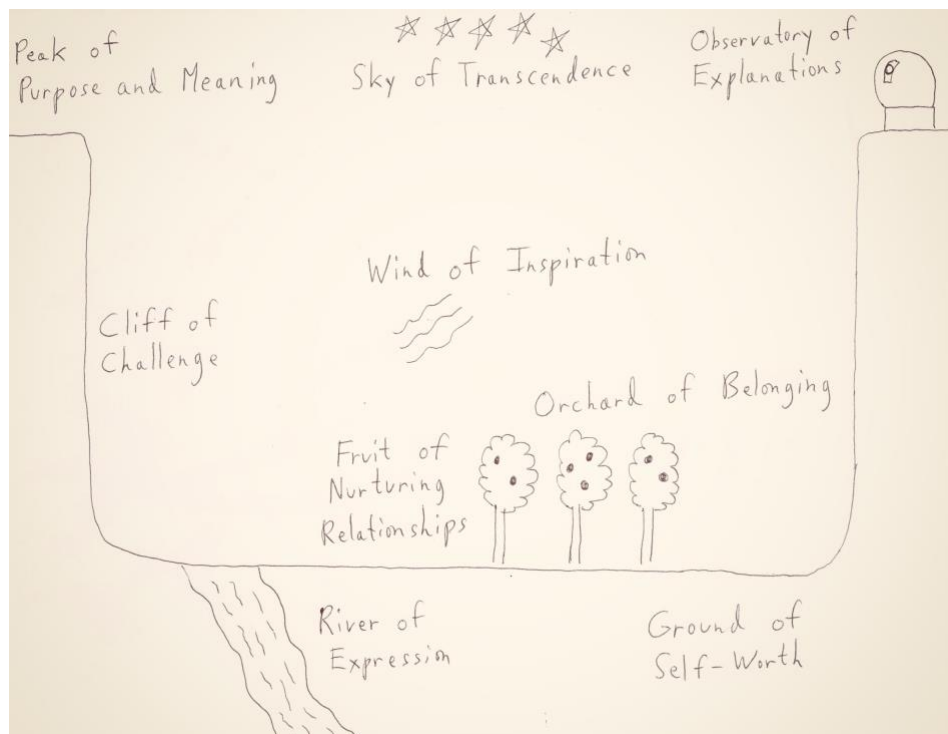 Peak of
Purpose and Meaning
Sky of Transcendence
Observatory of
Explanations
Wind of Inspiration
Cliff of
Challenge
Orchard of Belonging
Fruit of
Nurturing
Relationships
River of
Expression
Ground of
Self-Worth